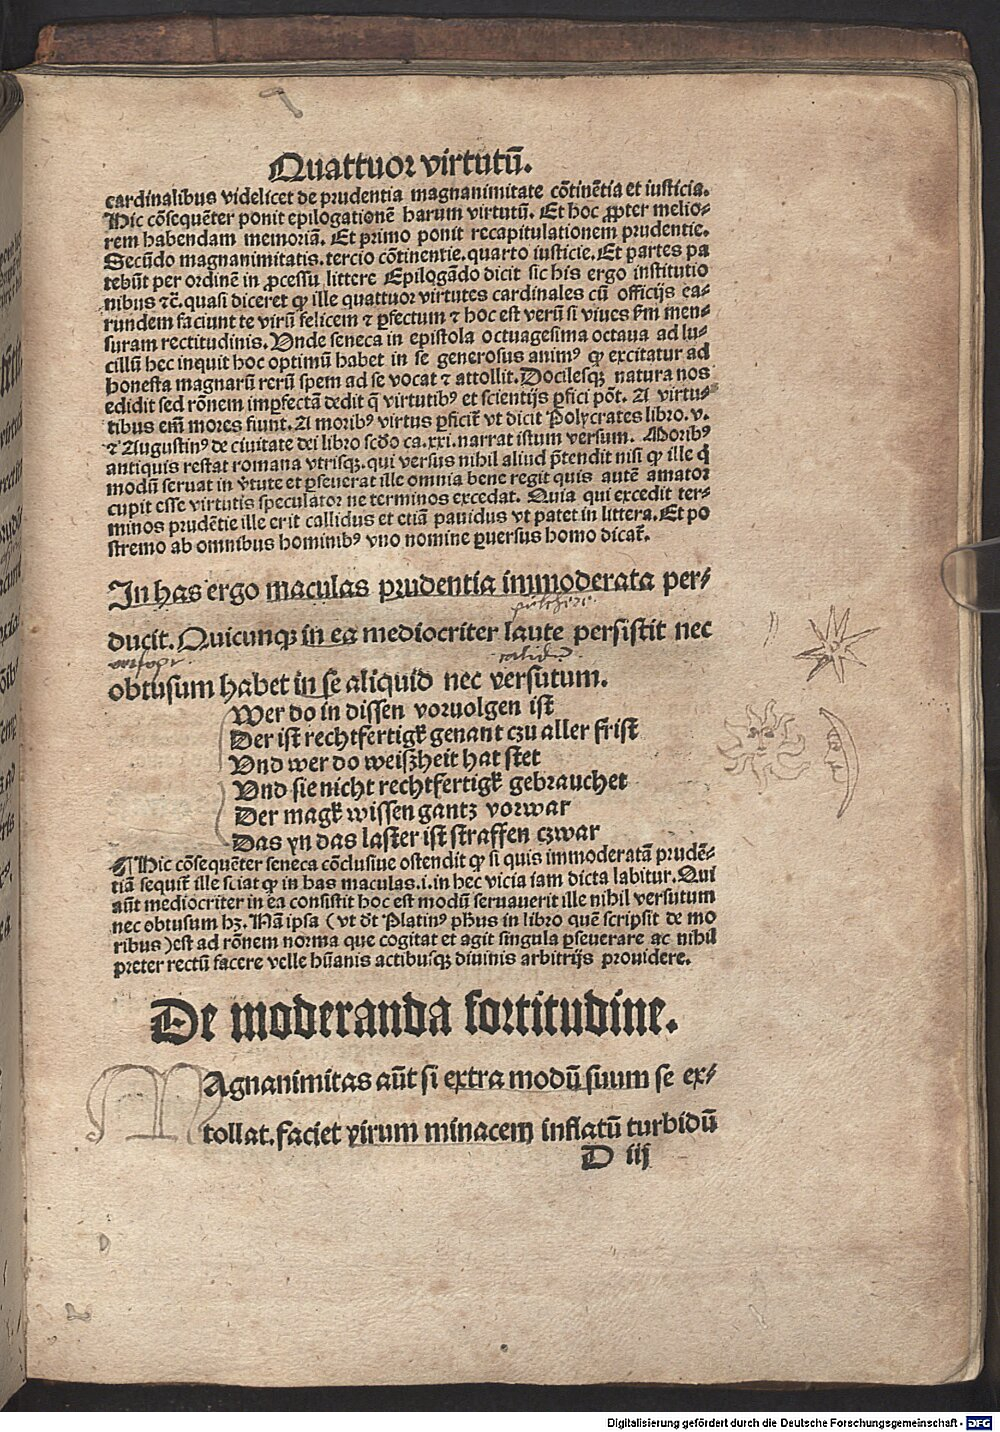 Quattuor virtutū.
cardinalibus videlicet de prudentia magnanimitate cōtinētia et iusticia.
Hic cōsequēter ponit epilogationē harum virtutū. Et hoc ꝓpter melio⸗
rem habendam memoriā. Et primo ponit recapitulationem prudentie.
Secūdo magnanimitatis. tercio cōtinentie. quarto iusticie. Et partes pa
tebūt per ordinē in ꝓcessu littere Epilogādo dicit sic his ergo institutio
nibus ⁊c̄. quasi diceret ꝙ ille quattuor virtutes cardinales cū officijs ea⸗
rundem faciunt te virū felicem ⁊ ꝑfectum ⁊ hoc est verū si viues ẜm men⸗
suram rectitudinis. Vnde seneca in epistola octuagesima octaua ad lu⸗
cillū hec inquit hoc optimū habet in se generosus animꝰ ꝙ excitatur ad
honesta magnarū rerū spem ad se vocat ⁊ attollit. Docilesqꝫ natura nos
edidit sed rōnem imꝑfectā dedit q̄ virtutibꝰ et scientijs ꝑfici pōt. A virtu⸗
tibus eīn mores fiunt. A moribꝰ virtus ꝑficit᷑ vt dicit Polycrates libro. v.
⁊ Augustinꝰ de ciuitate dei libro scd̄o ca. xxi. narrat istum versum. Moribꝰ
antiquis restat romana vtrisqꝫ. qui versus nihil aliud p̄tendit nisi ꝙ ille q̇
modū seruat in v̄tute et ꝑseuerat ille omnia bene regit quis autē amator
cupit esse virtutis speculator ne terminos excedat. Quia qui excedit ter⸗
minos prudētie ille erit callidus et etiā pauidus vt patet in littera. Et po
stremo ab omnibus hominibꝰ vno nomine ꝑuersus homo dicat᷑.
In has ergo maculas prudentia immoderata per⸗
ducit. Quicunqꝫ in ea mediocriter laute persistit nec
obtusum habet in se aliquid nec versutum.
Wer do in dissen voruolgen ist
Der ist rechtfertigk genant czu aller frist
Vnd wer do weiszheit hat stet
Vnd sie nicht rechtfertigk gebrauchet
Der magk wissen gantz vorwar
Das yn das laster ist straffen czwar
¶ Hic cōsequēter seneca cōclusiue ostendit ꝙ si quis immoderatā prudē⸗
tiā sequit᷑ ille sciat ꝙ in has maculas .i. in hec vicia iam dicta labitur. Qui
aūt mediocriter in ea consistit hoc est modū seruauerit ille nihil versutum
nec obtusum hꝫ. Nā ipsa (vt dt̄ Platinꝰ pħus in libro quē scripsit de mo
ribus) est ad rōnem norma que cogitat et agit singula ꝑseuerare ac nihil
preter rectū facere velle hūanis actibusqꝫ diuinis arbitrijs prouidere.
De moderanda fortitudine.
Magnanimitas aūt si extra modū suum se ex⸗
tollat. faciet virum minacem inflatū turbidū
D iij
Digitalisierung gefördert durch die Deutsche Forschungsgemeinschaft - DFG